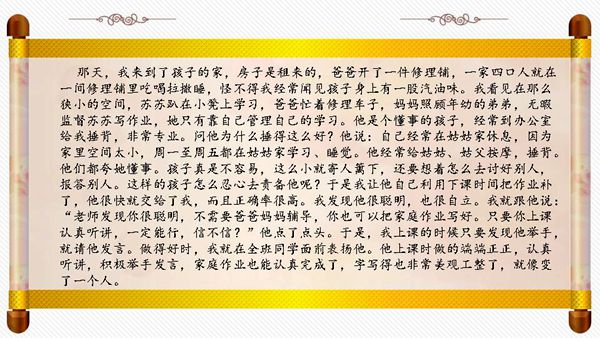 那天，我来到了孩子的家，房子是租来的，爸爸开了一件修理铺，一家四口人就在
一间修理铺里吃喝拉撒睡，怪不得我经常闻见孩子身上有一股汽油味。我看见在那么
狭小的空间，苏苏趴在小凳上学习，爸爸忙着修理车子，妈妈照顾年幼的弟弟，无暇
监督苏苏写作业，她只有靠自己管理自己的学习。他是个懂事的孩子，经常到办公室
给我捶背，非常专业。问他为什么捶得这么好？他说：自己经常在姑姑家休息，因为
家里空间太小，周一至周五都在姑姑家学习、睡觉。他经常给姑姑、姑父按摩，捶背。
他们都夸她懂事。孩子真是不容易，这么小就寄人篱下，还要想着怎么去讨好别人，
报答别人。这样的孩子怎么忍心去责备他呢？于是我让他自己利用下课时间把作业补
了，他很快就交给了我，而且正确率很高。我发现他很聪明，也很自立。我就跟他说：
“老师发现你很聪明，不需要爸爸妈妈辅导，你也可以把家庭作业写好。只要你上课
认真听讲，一定能行，信不信？”他点了点头。于是，我上课的时候只要发现他举手，
就请他发言。做得好时，我就在全班同学面前表扬他。他上课时做的端端正正，认真
听讲，积极举手发言，家庭作业也能认真完成了，字写得也非常美观工整了，就像变
了一个人。